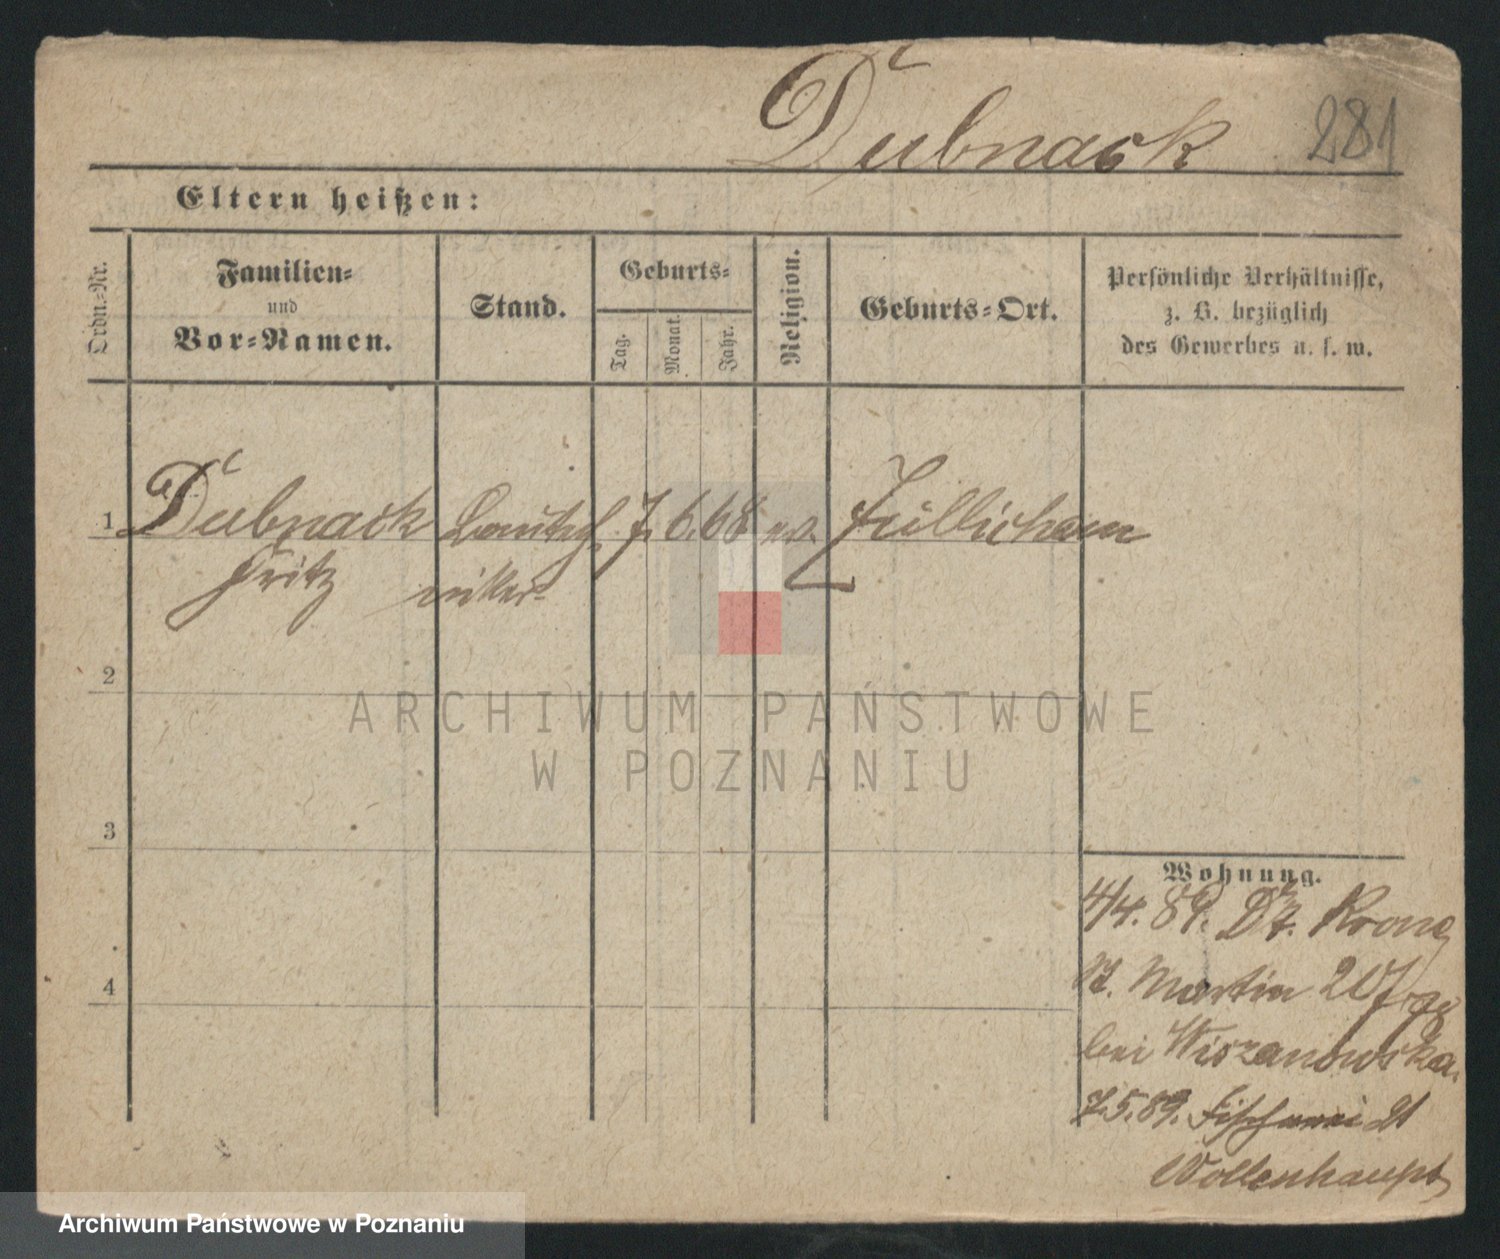 Dubnack 281
Eltern heißen:
Ordn.-Nr.
Familien-
und
Vor-Namen.
Stand.
Geburts-
Tag.
Monat.
Jahr.
Religion.
Geburts-Ort.
Persönliche Verhältnisse,
z. B. bezüglich
des Gewerbes u. s. w.
1 Dubnack 7. 6. 68 ev. Züllichau
Fritz
2
3
4
Wohnung.
4/4. 89. Dt. Krone
St. Martin 20
bei Wiszanowska.
7.5.89. Fischerei 21
Wollenhaupt
ARCHIWUM PAŃSTWOWE
W POZNANIU
Archiwum Państwowe w Poznaniu